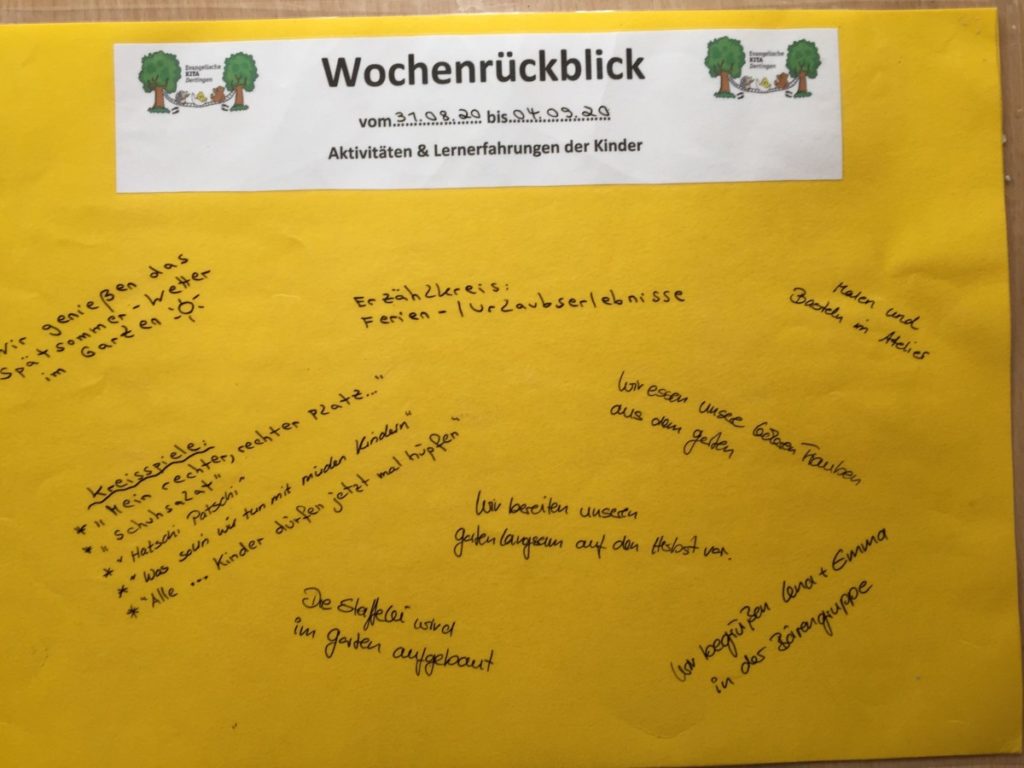 Evangelische
KITA
Dertingen
Wochenrückblick
Evangelische
KITA
Dertingen
vom 31.08.20 bis 04.09.20
Aktivitäten & Lernerfahrungen der Kinder
Wir genießen das
Spätsommer-Wetter
im Garten
Erzählkreis:
Ferien-/Urlaubserlebnisse
Malen und
Basteln im Atelier
Wir essen unsere Trauben
aus dem garten
Kreisspiele:
* "Mein rechter, rechter Platz..."
* "Schuhsalat"
* "Hatschi Patschi"
* "Was soll'n wir tun mit müden Kindern"
* "Alle ... Kinder dürfen jetzt mal hüpfen"
Wir bereiten unseren
garten langsam auf den Herbst vor.
Die Staffelei wird
im garten aufgebaut
Wir begrüßen Lena + Emma
in der Bärengruppe